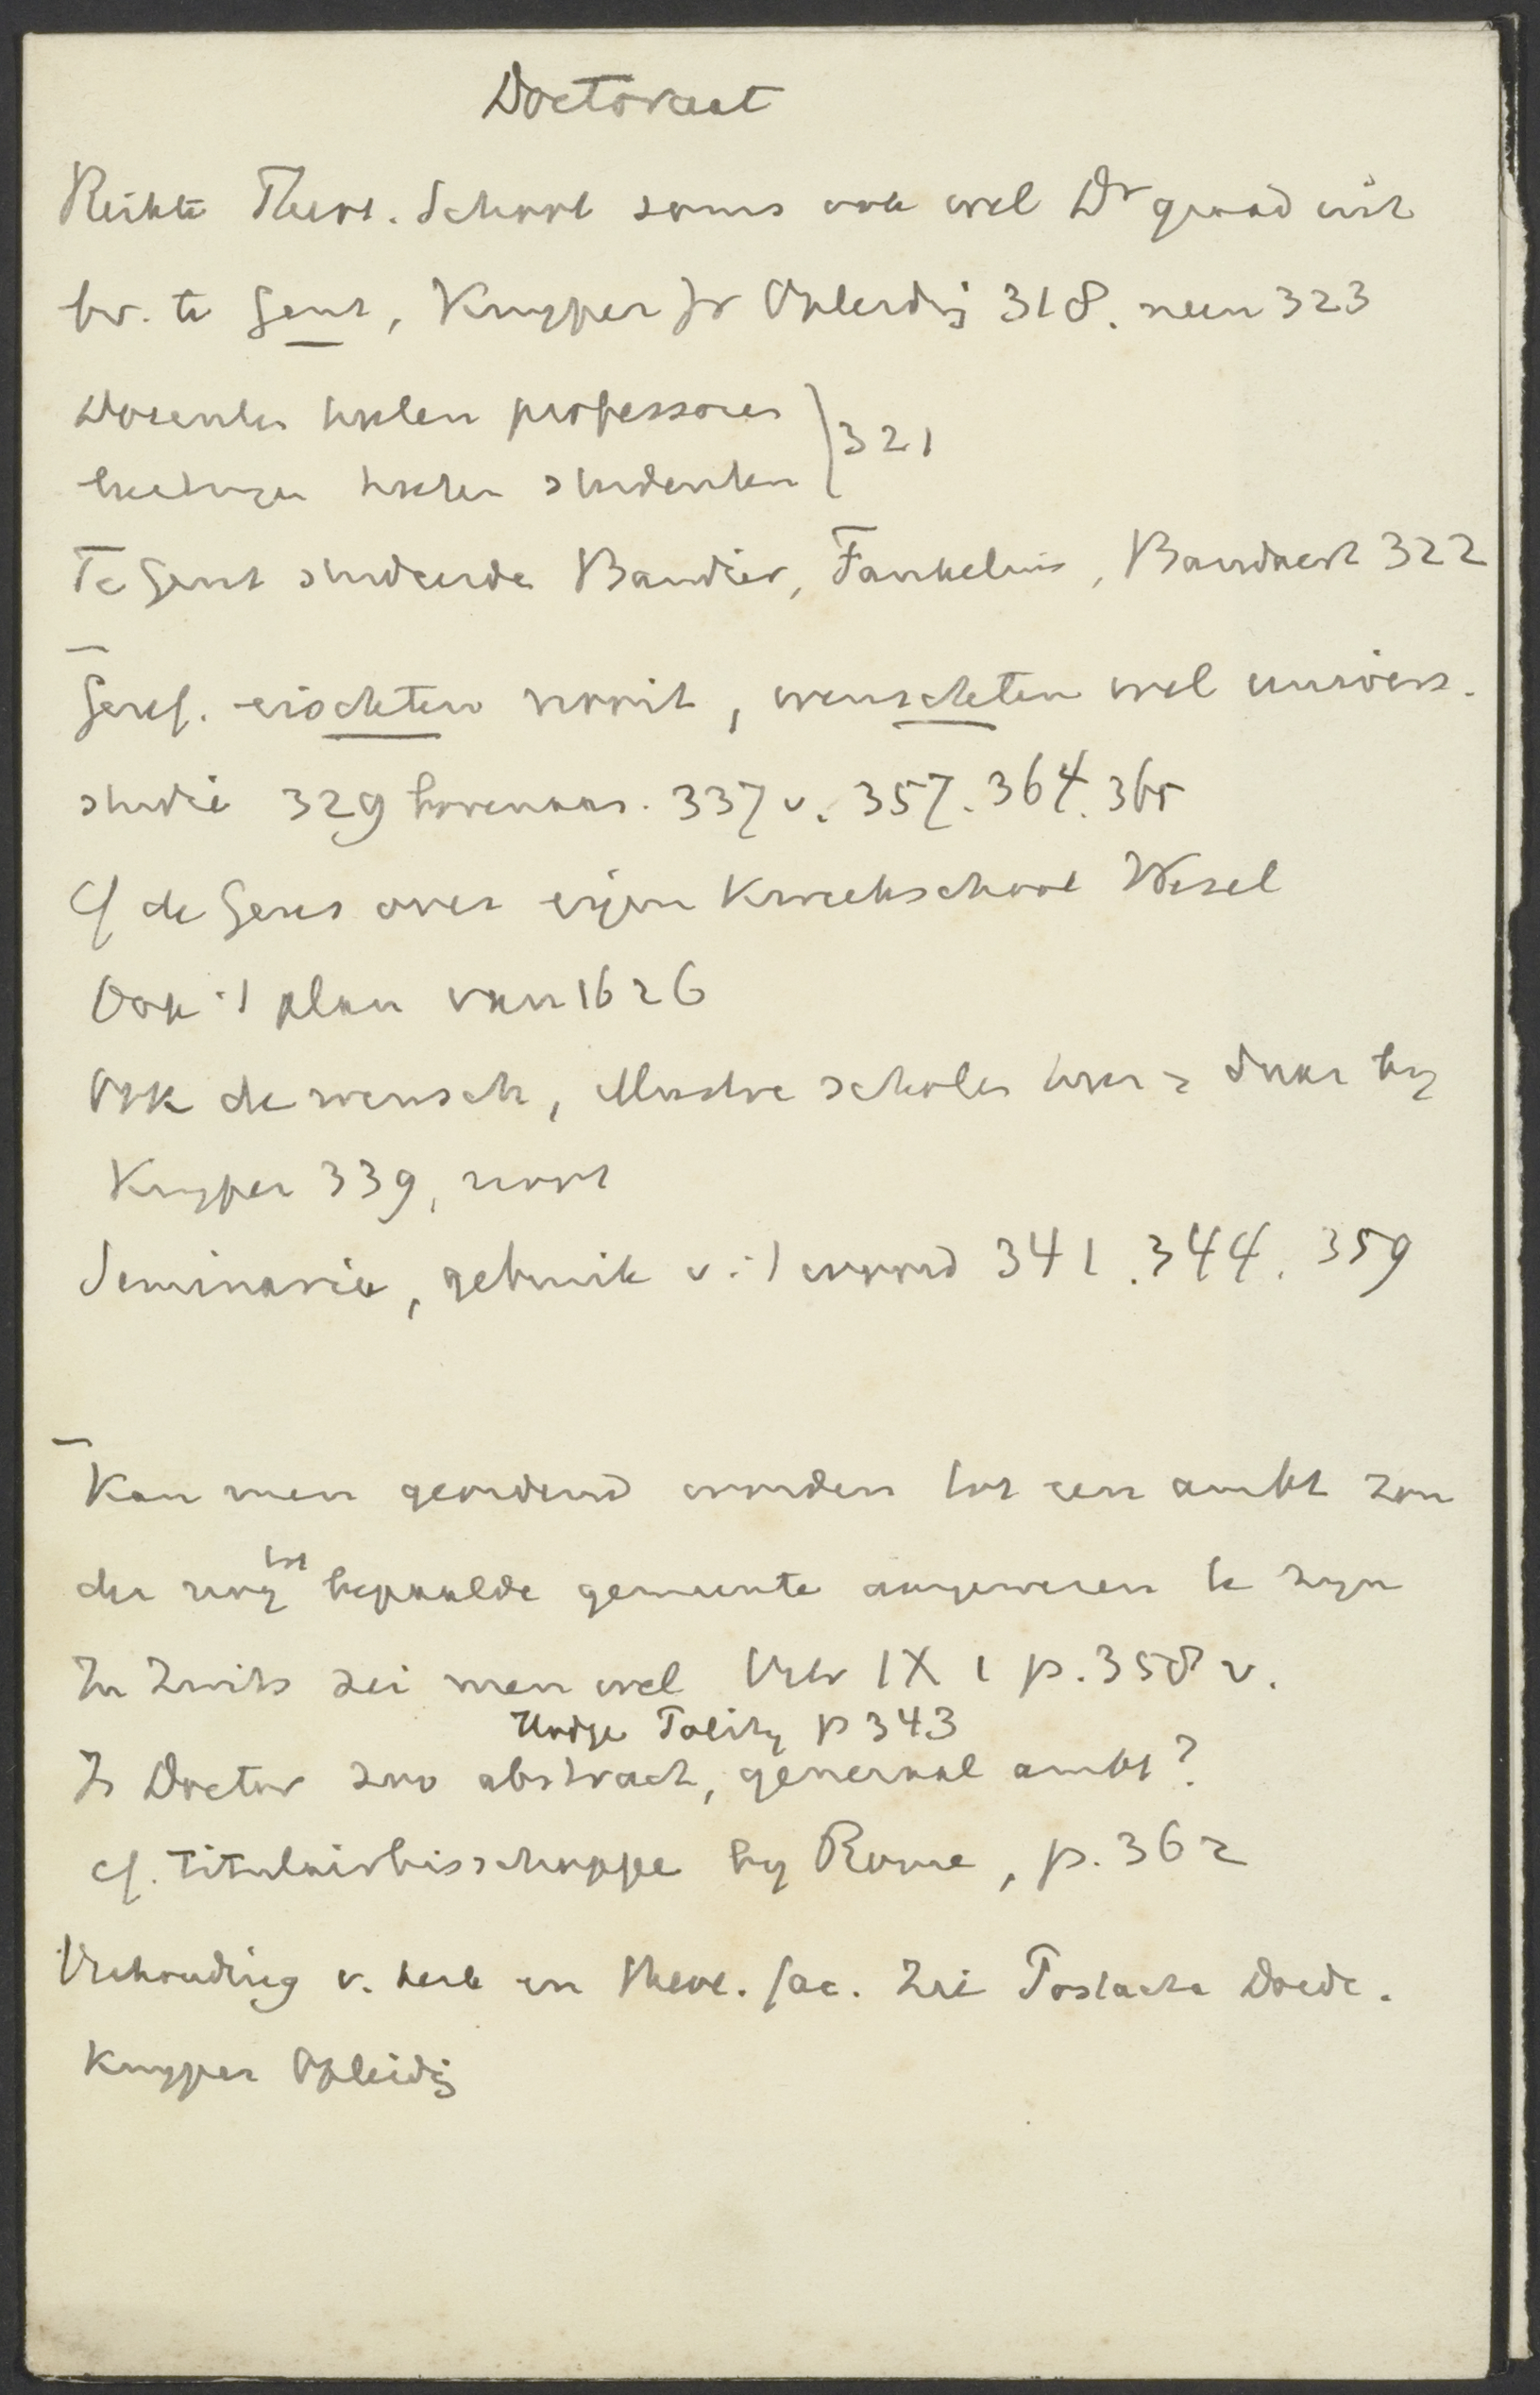 Doctoraat
Reikte Theol. School soms ook wel Dr graad uit
bv. te Gent, Kuyper Jr Opleidg 318. neen 323
Docenten heeten professoren } 321
kweekelingen heeten studenten
Te Gent studeerde Baudier, Faukelius, Baudaert 322
Geref. eischten nooit, wenschten wel univers.
studie 329 bovenaan. 337 v. 357. 364. 365
Cf de Geref over eigen Kweekschool Wesel
Ook 't plan van 1626
Ook de wensch, illustre scholen daar by
Kuyper 339, noot
Seminarie, gebruik v. 't woord 341. 344. 359
Kan men geordend worden tot een ambt zon
der nog tot bepaalde gemeente aangewezen te zyn
In Zwits zei men wel Vrb IX 1 p. 358 v.
Hodge Polity p 343
Is Doctor zoo abstract, generaal ambt?
cf. titulairbisschoppe by Rome, p. 362
Verhouding v. kerk en theol. fac. Zie Postacta Doede.
Kuyper Opleidg